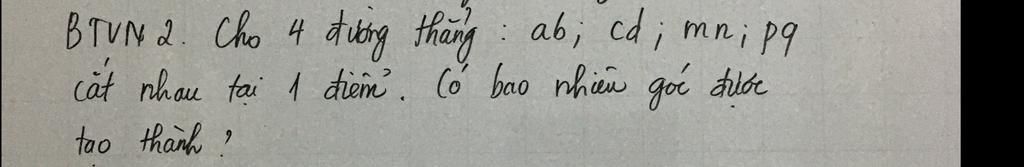 BTVN 2. Cho 4 đường thẳng : ab; cd; mn; pq
cắt nhau tại 1 điểm. Có bao nhiêu góc được
tạo thành?